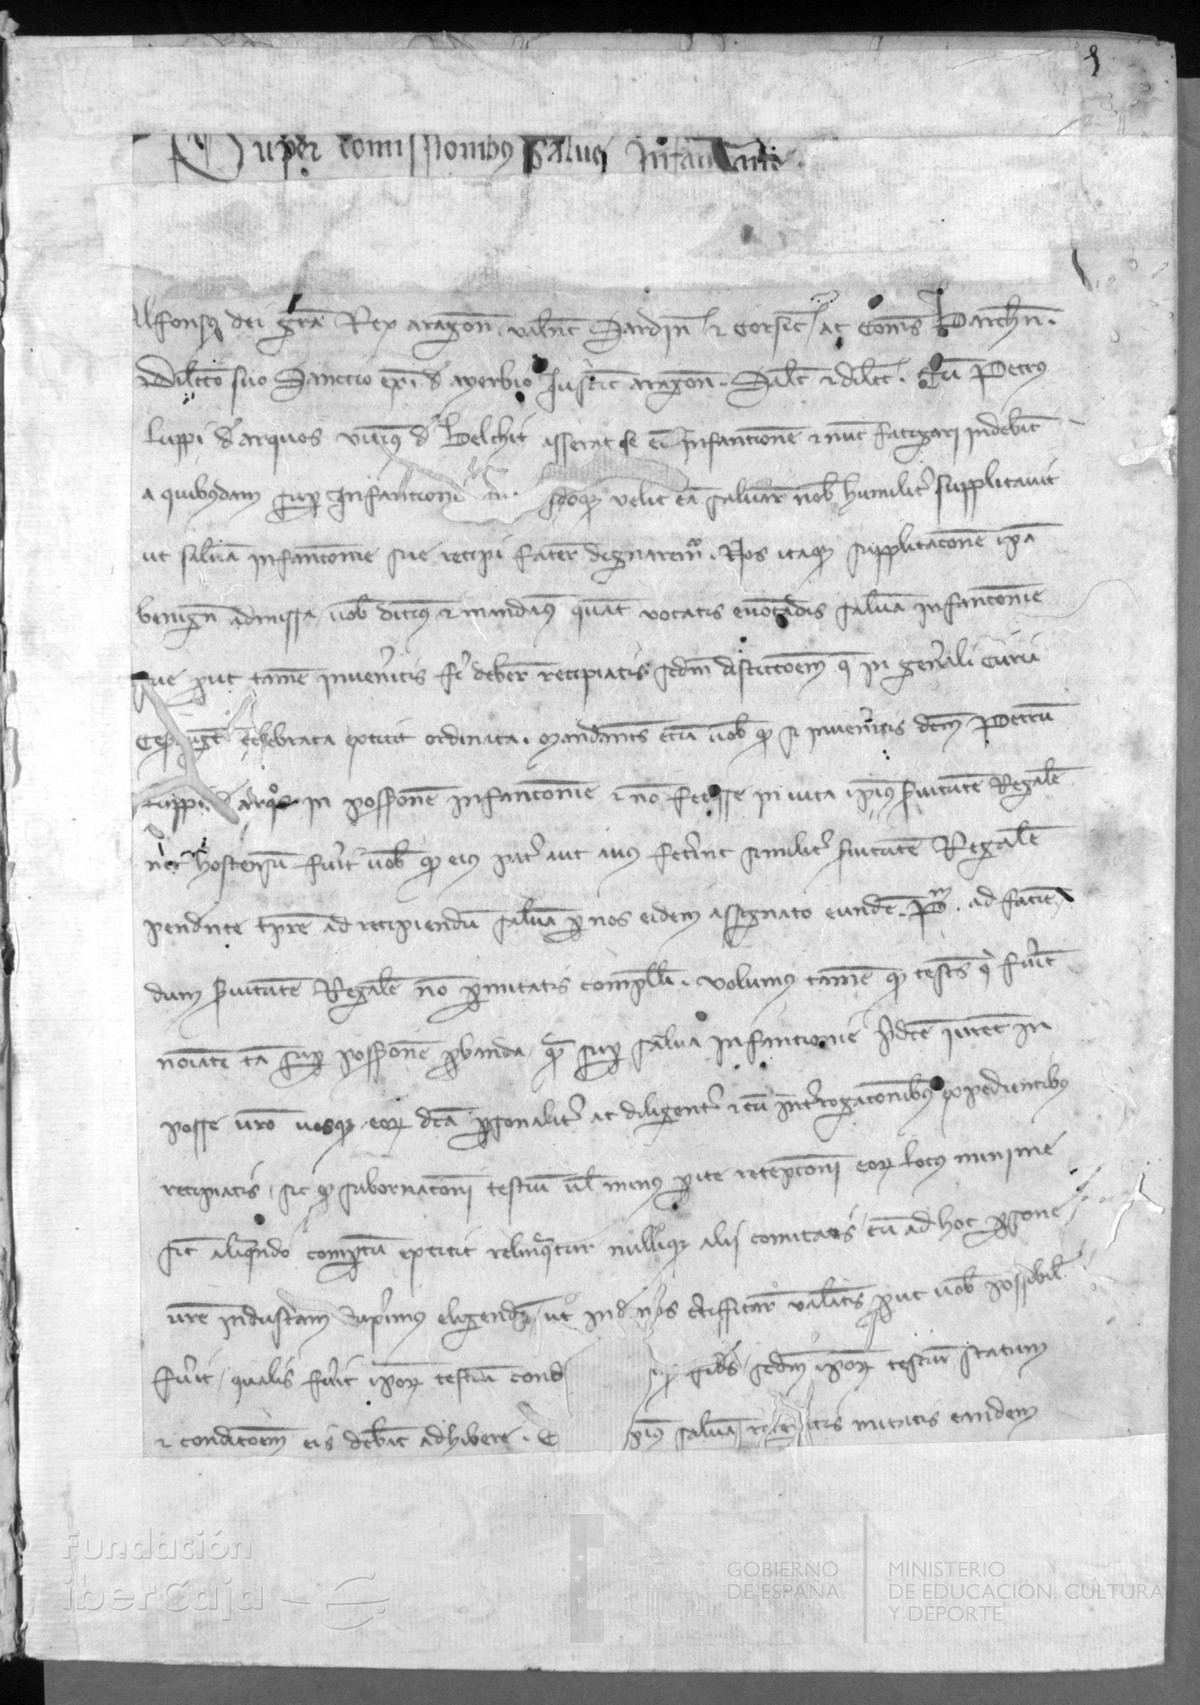 1
Super comissionibus salve Infantionie.
Alfonsus dei gra Rex aragon valnc Sardin et Corsic ac Comes Barchn.
Dilecto suo Sanccio exi d ayerbio Justic aragon. Salt et dilcc. Cum Petrus
luppi d arquos vicinus d Belchit asserat se ee Infantione et nunc fatigari indebite
a quibusdam sup Infantioni ideoque velit ea salvare nob humiliter supplicavit
ut salva infantionie sue recipi facere dignaremur. Nos itaque supplicatione ipa
benigne admissa vob dicimus et mandamus quat vocatis evocandis salva infantionie
sue put tamen inveneritis fi debere recipiatis scdm distinctioem que in generali Curia
Cesaraugt celebrata extitit ordinata. Mandantes etia vob quod si inveneritis dcm Petrum
luppi d arquos in possessione infantionie et non fecisse in vita ipsius servitute Regale
nec hostensum fuerit vob quod eius pater aut avus fecerint similiter servitute Regale
pendente tpre ad recipiendu salva per nos eidem assignato eunde Pm ad facien
dum servitute Regale no permittatis compelli. Volumus tamen quod testes qui fuerint
noiati ta sup possessione probanda qua sup salva infantionie predce iurent in
posse vro vosque eorum dca personaliter ac diligenter et cu interrogationibus expedientibus
recipiatis sic quod subornationi testium vel minus perite receptioni eorum locus minime
sic aliquando compertum extitit relinquatur nullique alii comittatis cu ad hoc persone
vre industriam duxerimus eligenda ut inde nos certifficare valeatis put vob possibile
fuerit qualis fuerit ipsorum testium cond fides scdm ipsorum testium statum
et condicioem eis debeat adhiberi. E pius salva receperitis mitatis eandem
Fundación
iberCaja
GOBIERNO
DE ESPAÑA
MINISTERIO
DE EDUCACIÓN, CULTURA
Y DEPORTE